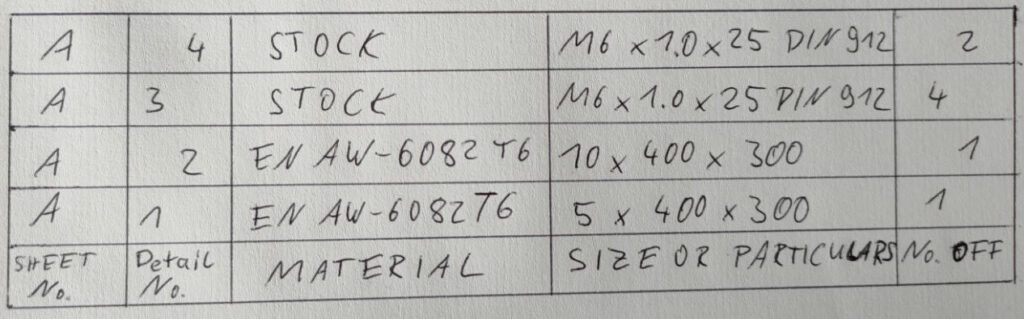 A 4 STOCK M6 x 1.0 x 25 DIN 912 2
A 3 STOCK M6 x 1.0 x 25 DIN 912 4
A 2 EN AW-6082 T6 10 x 400 x 300 1
A 1 EN AW-6082 T6 5 x 400 x 300 1
SHEET No. Detail No. MATERIAL SIZE OR PARTICULARS No. OFF